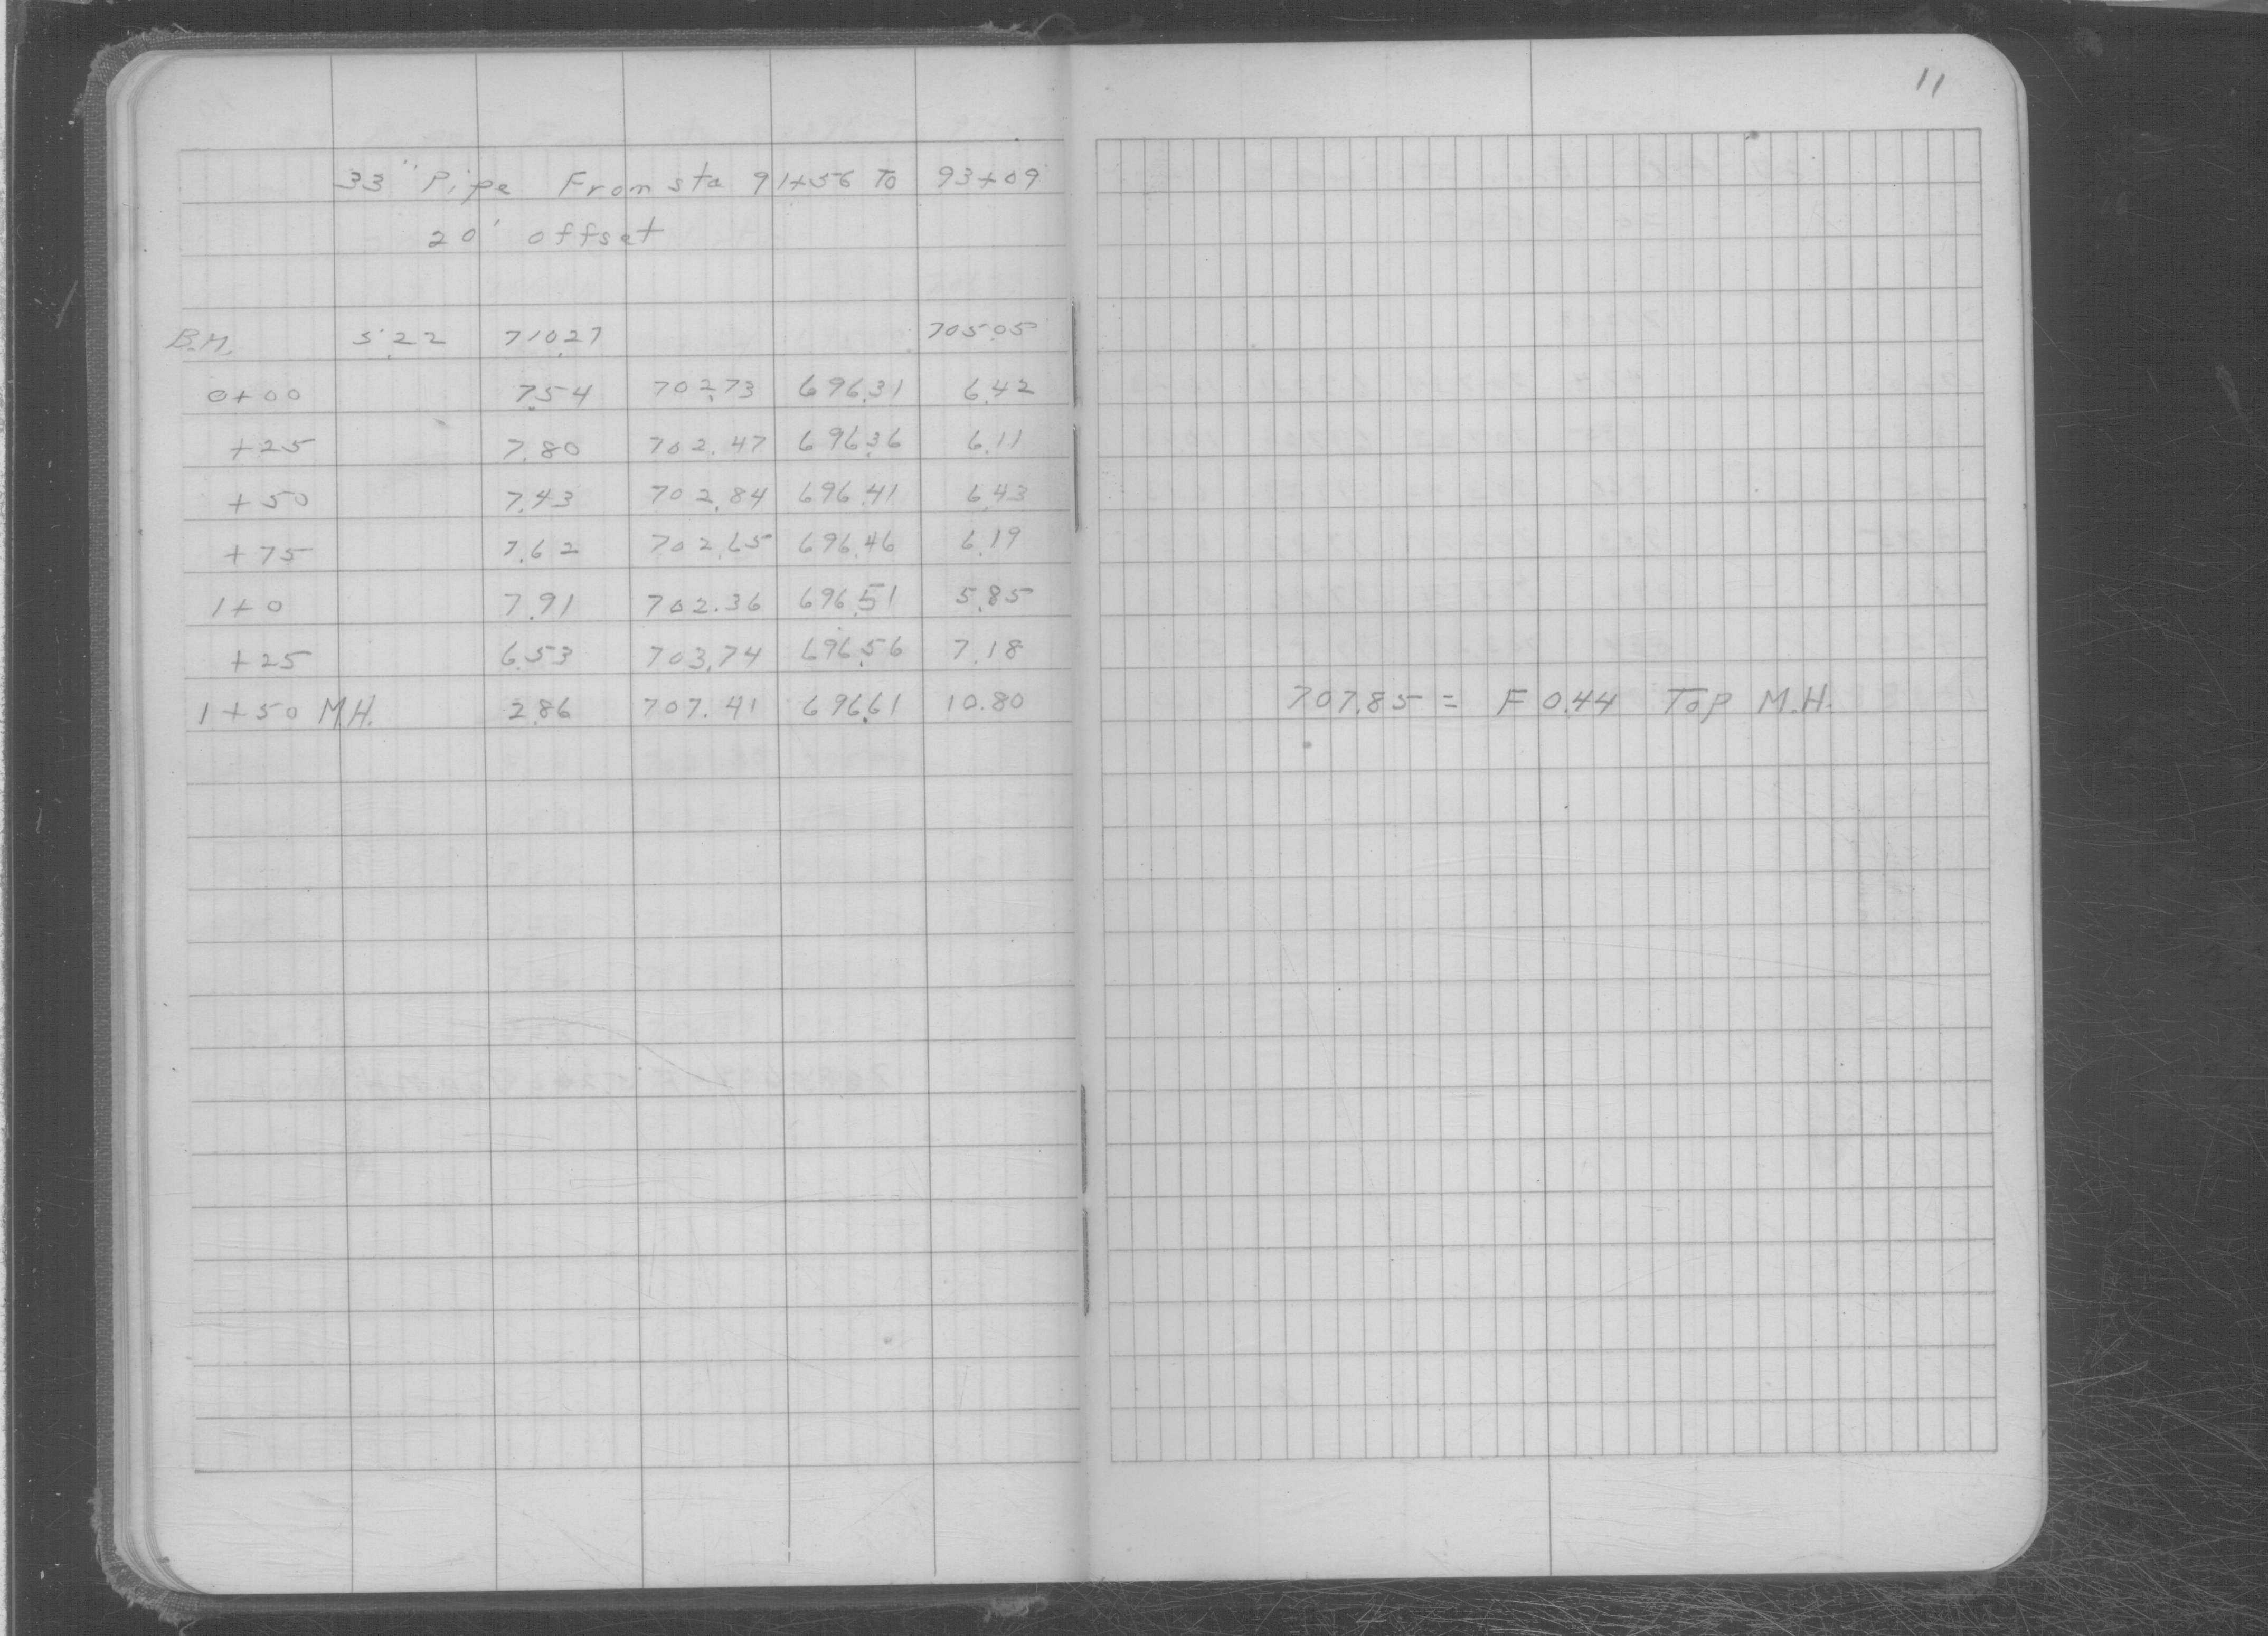 11
33" Pipe From sta 91+56 To 93+09
20' offset
B.M. 5.22 710.27 705.05
0+00 7.54 702.73 696.31 6.42
+25 7.80 702.47 696.36 6.11
+50 7.43 702.84 696.41 6.43
+75 7.62 702.65 696.46 6.19
1+0 7.91 702.36 696.51 5.85
+25 6.53 703.74 696.56 7.18
1+50 M.H. 2.86 707.41 696.61 10.80 707.85 = F 0.44 Top M.H.